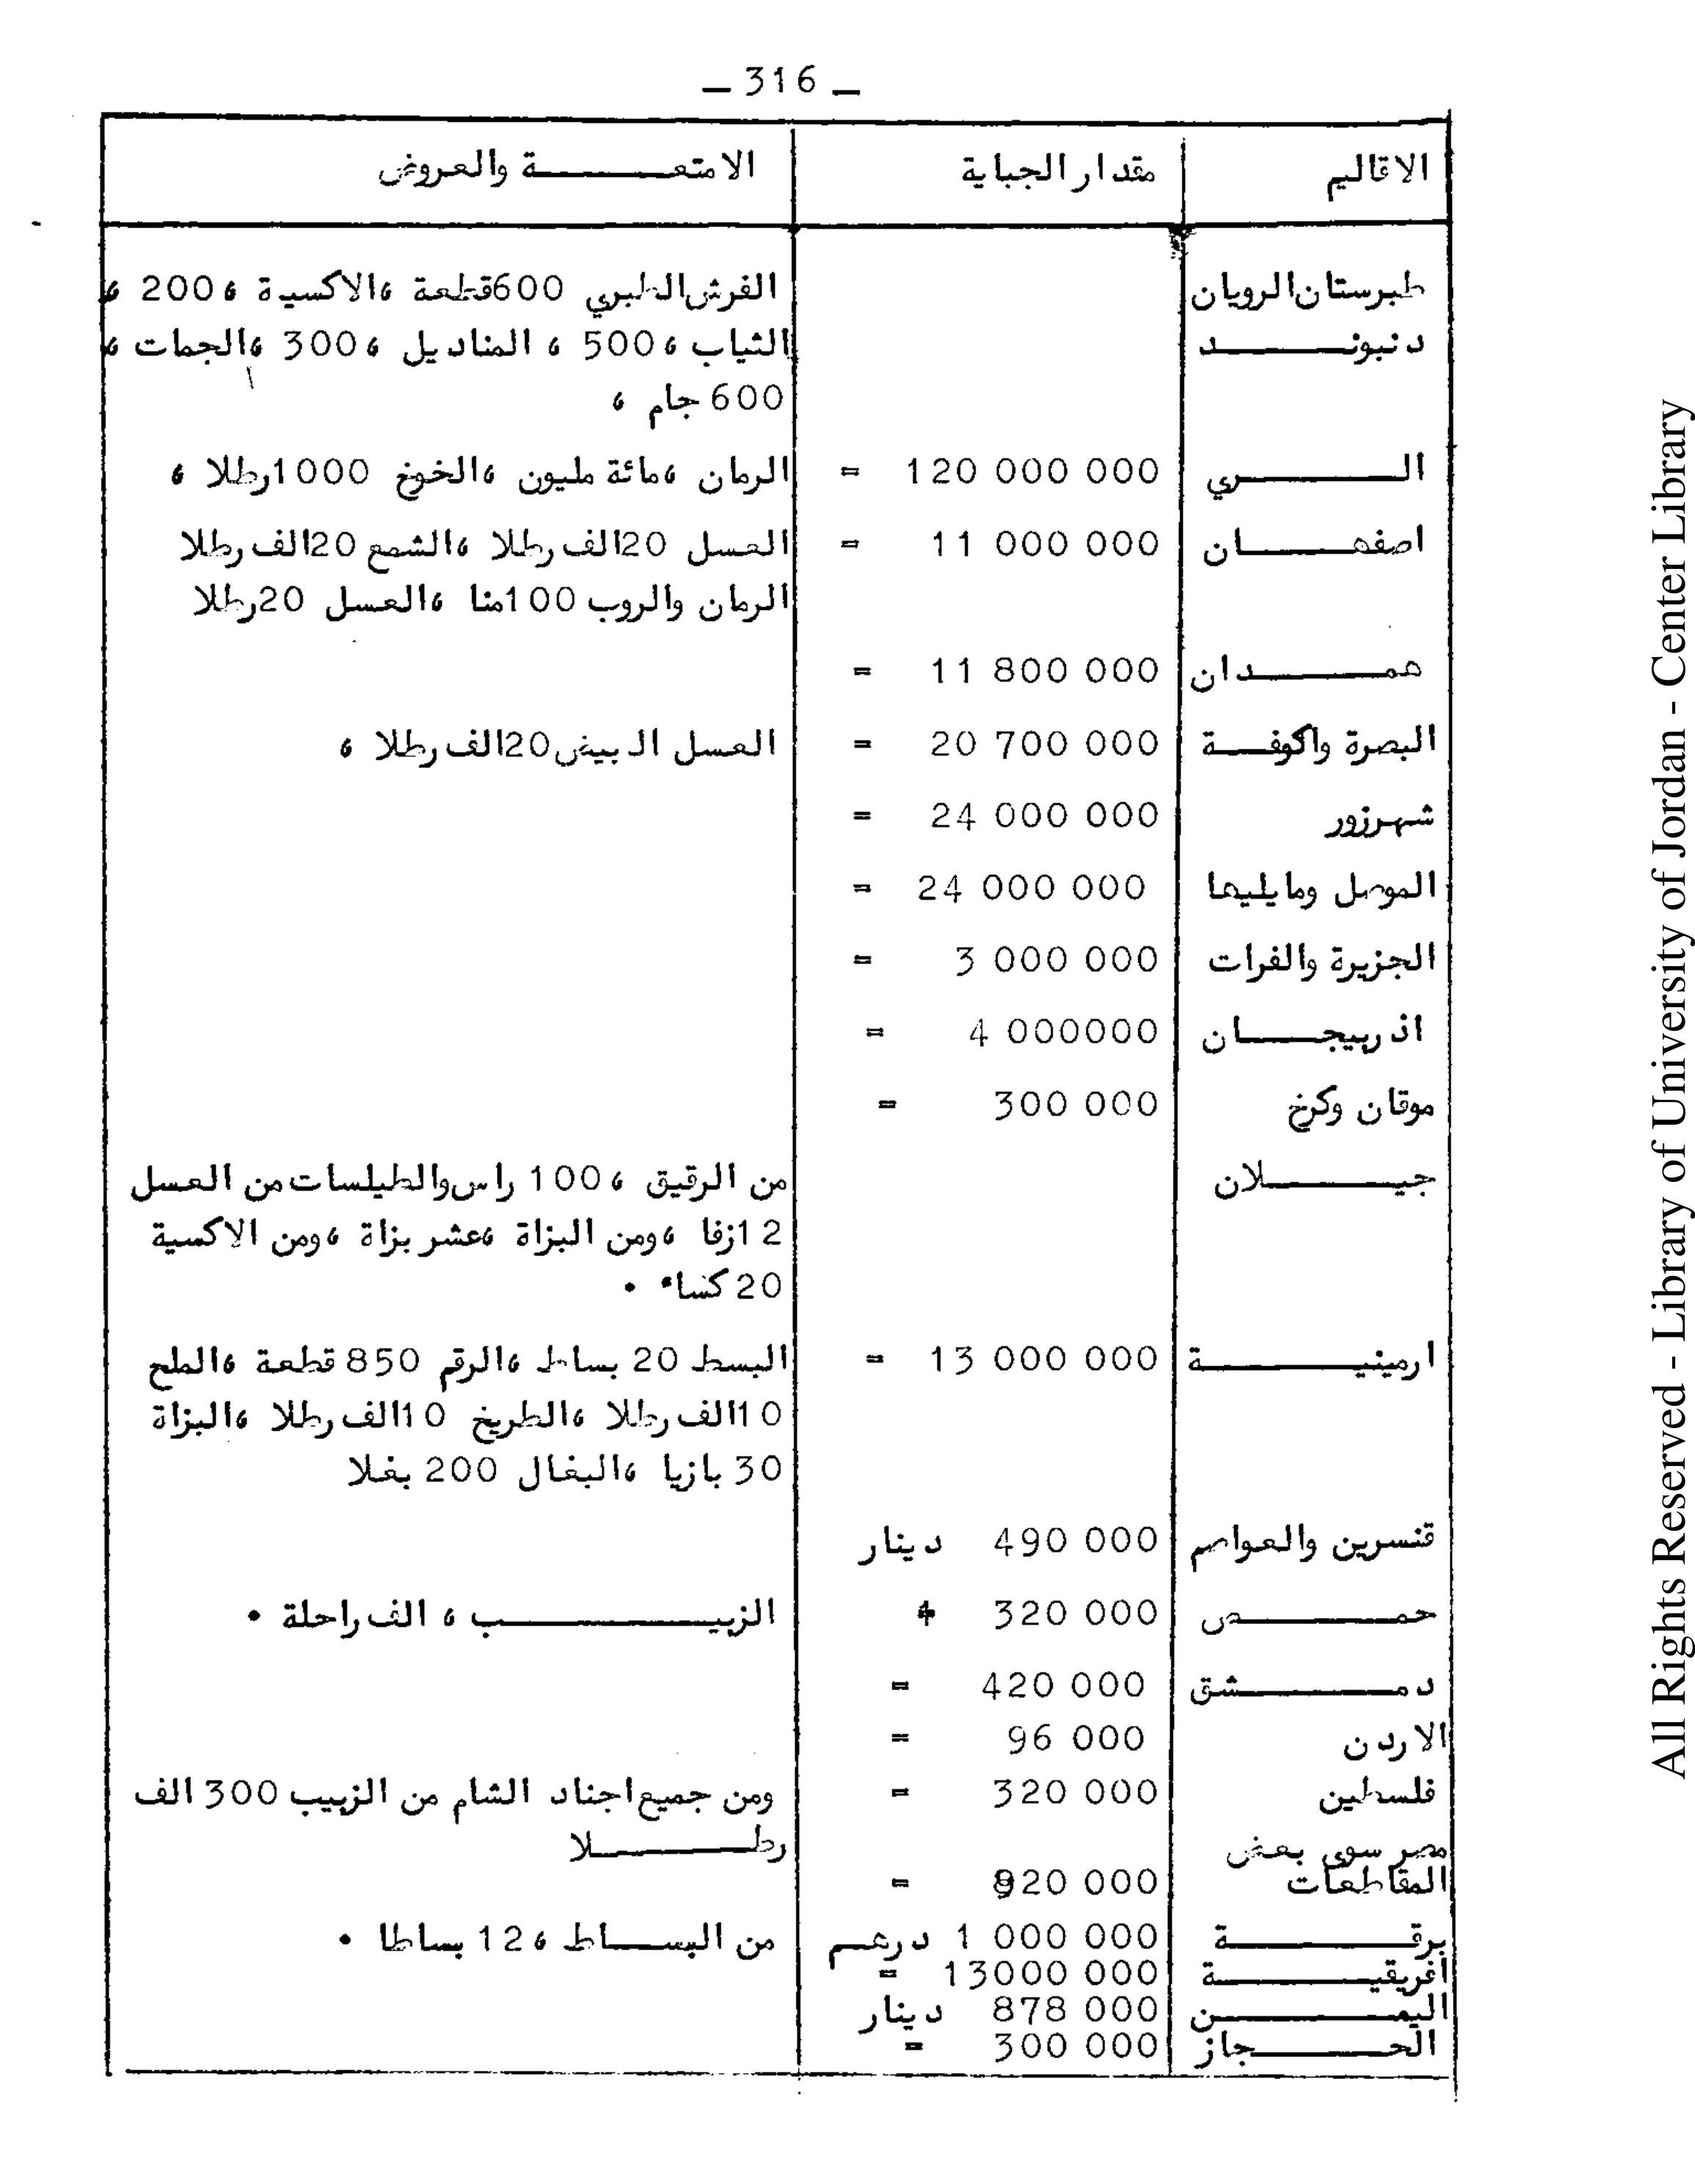 _ 316 _
الاقاليم مقدار الجباية الامتعـــــة والعروض
طبرستان الرويان الفرش الطبري 600 قطعة ، الاكسية ، 200 ،
دنبونـــــد الثياب ، 500 ، المناديل ، 300 ، الجمات ،
600 جام ،
الـــــري 120 000 000 = الرمان ، مائة مليون ، الخوخ 1000 رطلا ،
اصفهـــــان 11 000 000 = العسل 20 الف رطلا ، الشمع 20 الف رطلا
الرمان والروب 100 منا ، العسل 20 رطلا
همـــــدان 11 800 000 =
البصرة واكوفـــة 20 700 000 = العسل البيض 20 الف رطلا ،
شهرزور 24 000 000 =
الموصل ومايليها 24 000 000 =
الجزيرة والفرات 3 000 000 =
اذربيجـــــان 4 000000 =
موقان وكرخ 300 000 =
جيـــــلان من الرقيق ، 100 راس والطيلسات من العسل
12 زقا ، ومن البزاة ، عشر بزاة ، ومن الاكسية
20 كساء .
ارمينيـــــة 13 000 000 = البسط 20 بساط ، الرقم 850 قطعة ، الملح
10 الف رطلا ، الطريخ 10 الف رطلا ، البزاة
30 بازيا ، البغال 200 بغلا
قنسرين والعواصم 490 000 دينار
حمـــــص 320 000 = الزبيـــــب ، الف راحلة .
دمـــــشق 420 000 =
الاردن 96 000 =
فلسطين 320 000 = ومن جميع اجناد الشام من الزبيب 300 الف
رطـــــلا
مصر سوى بعض
المقاطعات 920 000 =
برقـــــة 1 000 000 درهـم من البســـاط ، 12 بساطا .
افريقيـــــة 13000 000 =
اليمـــــن 878 000 دينار
الحـــــجاز 300 000 =
All Rights Reserved - Library of University of Jordan - Center Library